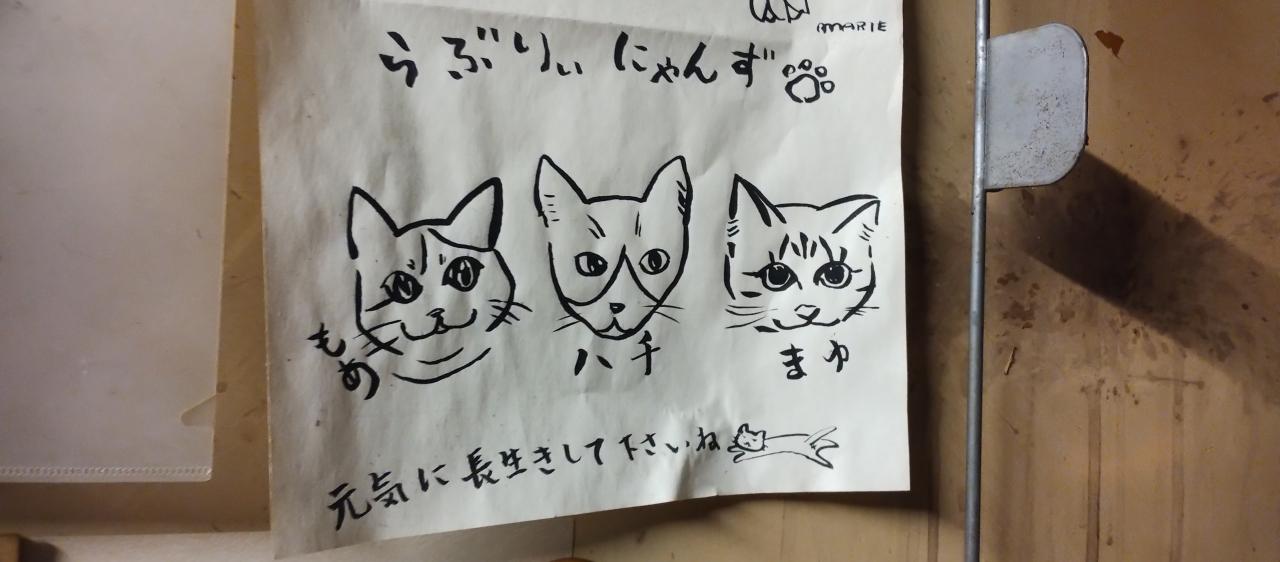 MARIE
らぶりぃ にゃんず
もあ
ハチ
まゆ
元気に長生きして下さいね